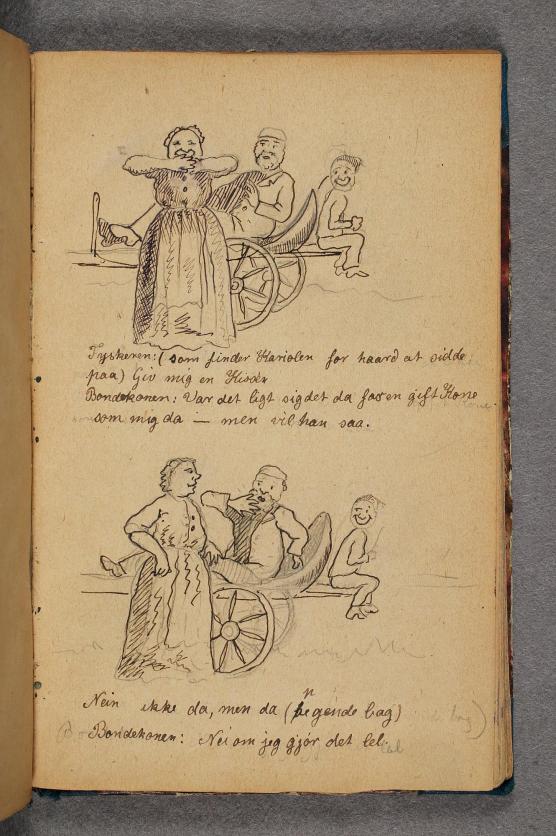 Tyskeren: (som finder Kariolen for haard at sidde
paa) Giv mig en
Bondekonen: Var det ligt sig det da for en gift Kone
som mig da — men vil han saa.
Nein ikke da, men da (pegende bag)
Bondekonen: Nei om jeg gjør det lel.